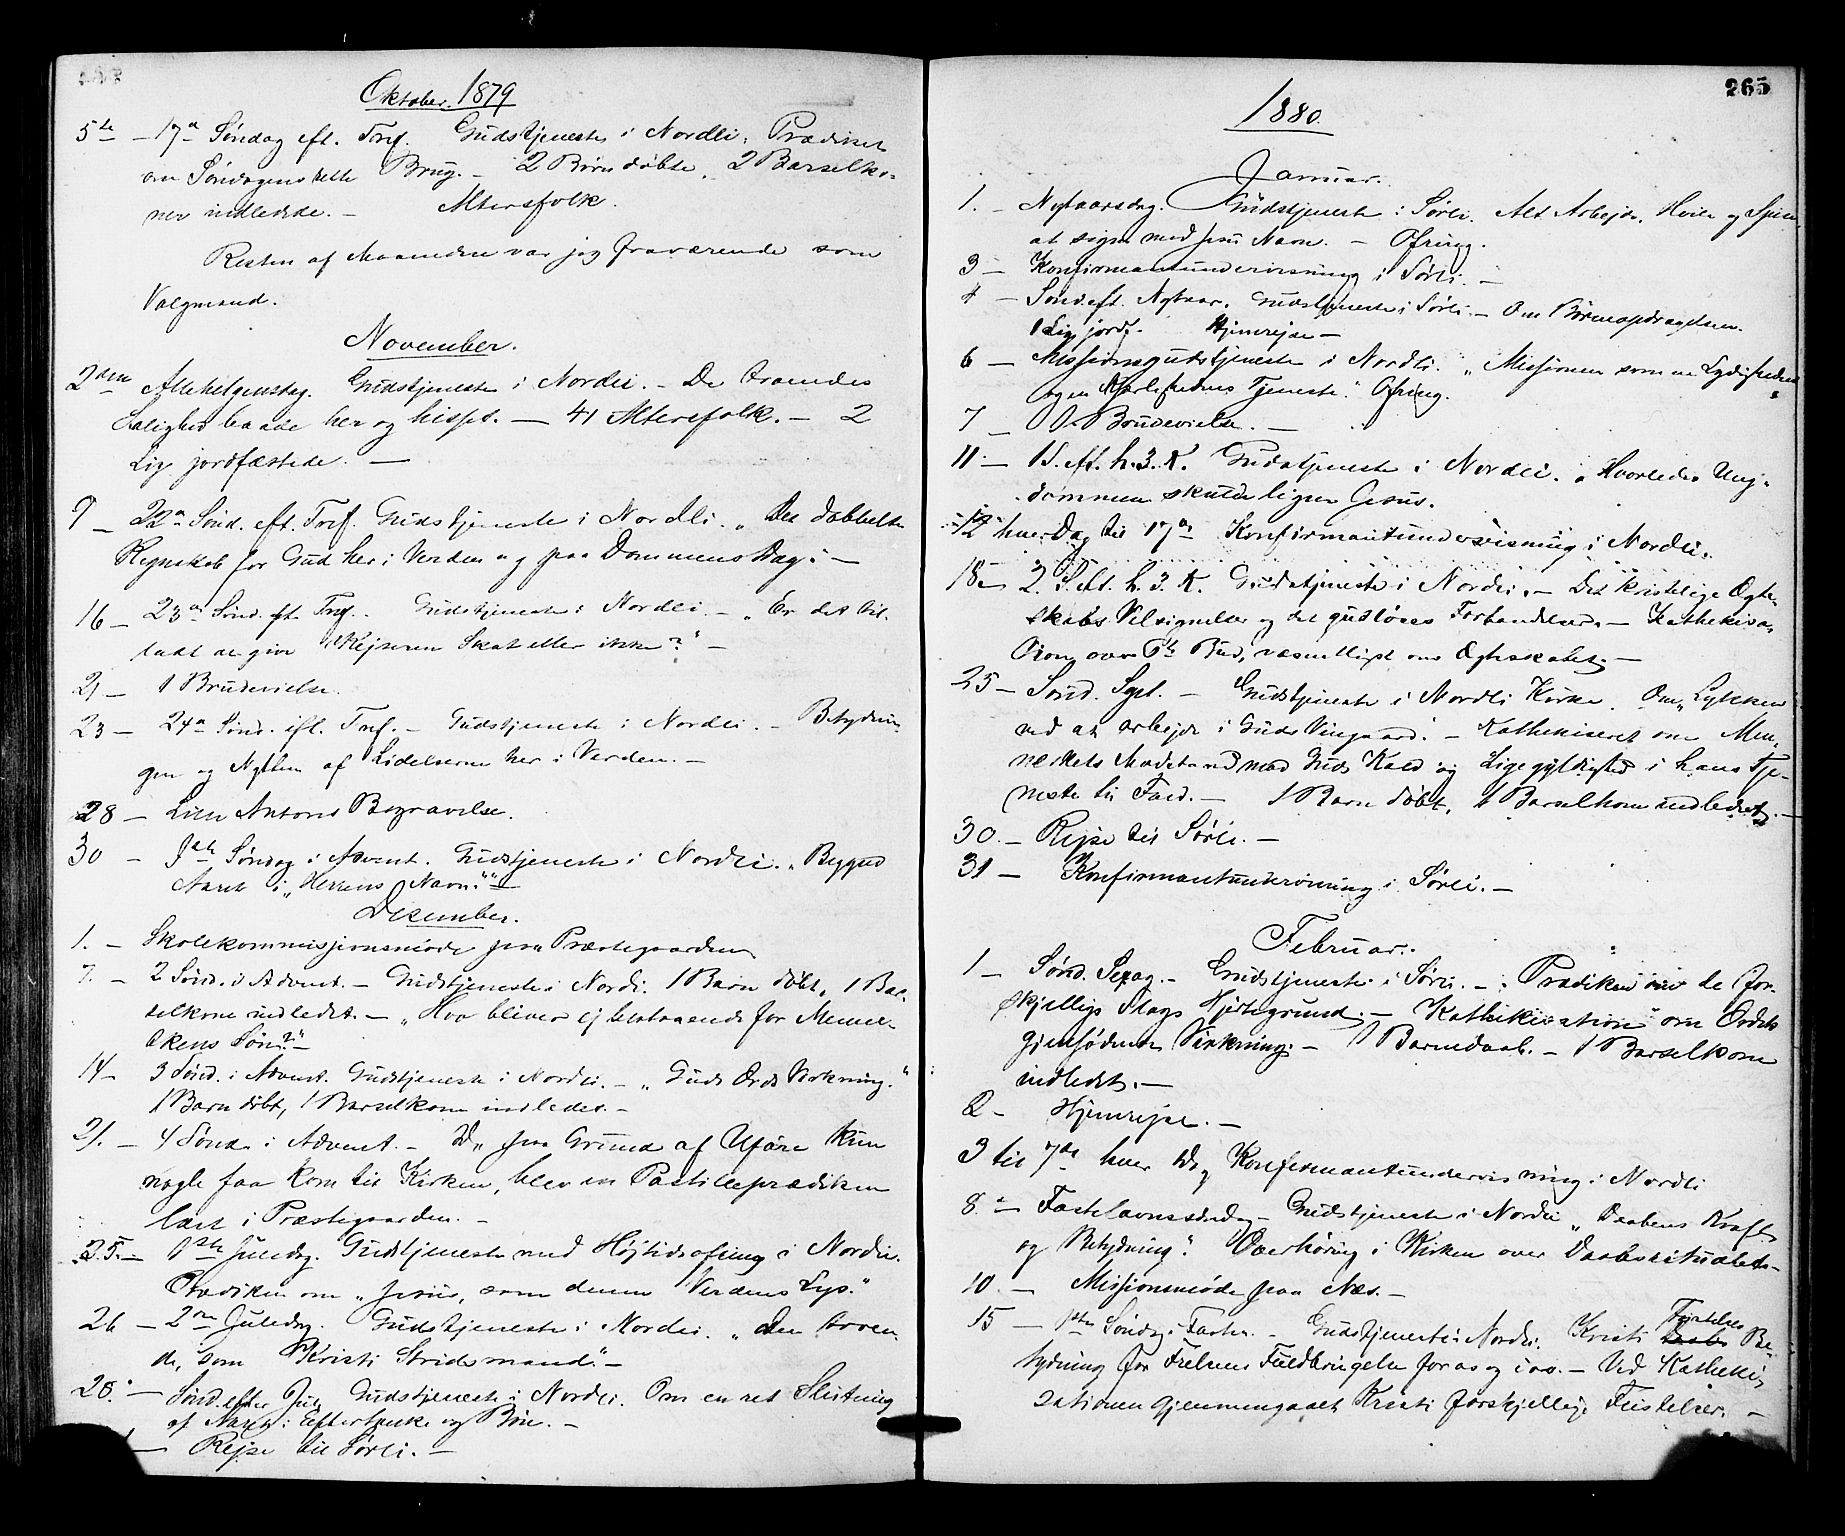 Oktober. 1879
5te – 17de Søndag eft. Tref. Gudstjeneste i Nordli. Prædiket
om Søndagens rette Brug. – 2 Børn døbte, 2 Barselko-
ner indledede. – Altersfolk.
Resten af Maaneden var jeg fraværende som
Valgmand.
November.
2den Allehelgensdag. Gudstjeneste i Nordli. – De troendes
Salighed baade her og hisset. – 41 Altersfolk. – 2
Lig jordfæstede. –
9 – 22de Sønd. eft. Tref. Gudstjeneste i Nordli. „Det dobbelte
Regnskab for Gud her i Verden og paa Dommens Dag". –
16 – 23de Sønd. eft. Tref. Gudstjeneste i Nordli. – „Er det til-
ladt at give Kejseren Skat eller ikke?" –
21 – 1 Brudevielse.
23 – 24de Sønd. eft. Tref. – Gudstjeneste i Nordli. – Betydnin-
gen og Nytten af Lidelserne her i Verden. –
28 – Liden Antons Begravelse.
30 – 1ste Søndag i Advent. Gudstjeneste i Nordli. „Begynd
Aaret i „Herrens Navn."" –
Desember.
1. – Skolekommissjonsmøde paa Præstegaarden
7. – 2 Sønd. i Advent. – Gudstjeneste i Nordli. 1 Barn døbt, 1 Bar-
selkone indledet. – „Hvo bliver ej bestaaende for Menne-
skens Søn?" –
14 – 3 Sønd. i Advent. Gudstjeneste i Nordli. – „Guds Ords Virkning."
1 Barn døbt, 1 Barselkone indledet. –
21. – 4 Sønd. i Advent. – Da paa Grund af Uføre kun
nogle faa kom til Kirken, blev en Postilleprædiken
læst i Præstegaarden. –
25. – 1ste Juledag. Gudstjeneste med Højtidsofring i Nordli.
Prædiken om „Jesus, som denne Verdens Lys."
26 – 2den Juledag. Gudstjeneste i Nordli. „Den troen-
de, som Kristi Stridsmand". –
28. – Sønd. efter Jul Gudstjeneste i Nordli. Om en ret Slutning
af Aaret i Eftertanke og Bøn. –
– Rejse til Sørli. –
265
1880.
Januar.
1. – Nytaarsdag. Gudstjeneste i Sørli. Alt Arbejde, Hvile og Spise
at signe med Jesu Navn. – Ofring.
3 – Konfirmantundervisning i Sørli. –
4 – Sønd. eft. Nytaar. Gudstjeneste i Sørli. – Om Børneopdragelsen.
1 Lig jordf. Hjemrejse –
6 – Missionsgudstjeneste i Nordli. „Missionen som en Lydigheds
og en Kjærlighedens Tjeneste". Ofring.
7 – Brudevielse. –
11. – 1 S. eft. h. 3. K. Gudstjeneste i Nordli. „Hvorledes Ung-
dommen skulde ligne Jesus.
12 hver Dag til 17de Konfirmantundervisning i Nordli.
18 – 2. S. eft. h. 3. K. Gudstjeneste i Nordli. – Det kristelige Ægte-
skabs Velsignelse og det gudløses Forbandelse. – Kathekisa-
tion over 6te Bud, væsentligst om Ægteskabet. –
25 – Sønd. Spt. – Gudstjeneste i Nordli Kirke. Om „Lykken
ved at arbejde i Guds Vingaard". – Kathekiseret om Men-
neskets Modstand mod Guds Kald og Ligegyldighed i hans Tje-
neste til Fald. – 1 Barn døbt, 1 Barselkone indledet. –
30. – Rejse til Sørli. –
31 – Konfirmantundervisning i Sørli. –
Februar.
1 – Sønd. Sexag. – Gudstjeneste i Sørli. – Prædiken over de for-
skjellige Slags Hjertegrund. – Kathekisation om Ordets
gjenfødende Virkning. – 1 Barnedaab. – 1 Barselkone
indledet. –
2 – Hjemrejse. –
3 til 7de hver Dag Konfirmantundervisning i Nordli
8. – Fastelavnssøndag – Gudstjeneste i Nordli „Daabens Kraft
og Betydning". Overhøring i Kirken over Daabsritualet. –
10. – Missionsmøde paa Næs. –
15 – 1ste Søndag i Fasten. – Gudstjeneste i Nordli. Kristi Fristelses Be-
tydning for Frelsens Fuldbringelse for os og i os. – Ved Katheki-
sationen gjennemgaaet Kristi forskjellige Fristelser. –